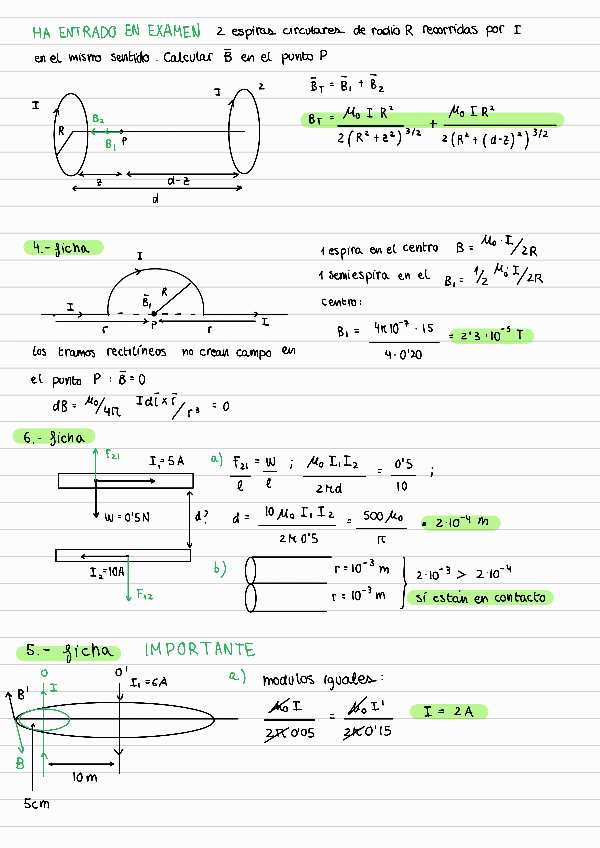 HA ENTRADO EN EXAMEN 2 espiras circulares de radio R recorridas por I
en el mismo sentido. Calcular B̄ en el punto P
B̄T = B̄1 + B̄2
I
I
2
R
B2
B1
P
BT = μ0 I R² / 2(R² + z²)^3/2 + μ0 I R² / 2(R² + (d-z)²)^3/2
z
d-z
d
4.- ficha
I
R
B̄1
I
P
r
r
I
1 espira en el centro B = μ0·I/2R
1 semiespira en el B1 = 1/2 μ0·I/2R
centro:
B1 = 4π10⁻⁷ · 15 / 4·0'20 = 2'3·10⁻⁵ T
Los tramos rectilíneos no crean campo en
el punto P : B̄ = 0
dB = μ0/4π I dl̄ x r̄/r³ = 0
6.- ficha
F21
I1=5A
W=0'5N
d?
I2=10A
F12
a) F21/ℓ = W/ℓ ; μ0 I1 I2 / 2πd = 0'5 / 10 ;
d = 10 μ0 I1 I2 / 2π 0'5 = 500 μ0 / π = 2·10⁻⁴ m
b) r = 10⁻³ m
r = 10⁻³ m
2·10⁻³ > 2·10⁻⁴
sí están en contacto
5.- ficha IMPORTANTE
O
O'
B'
I
I1=6A
B
10m
5cm
a) modulos iguales:
μ0 I / 2π 0'05 = μ0 I' / 2π 0'15
I = 2A